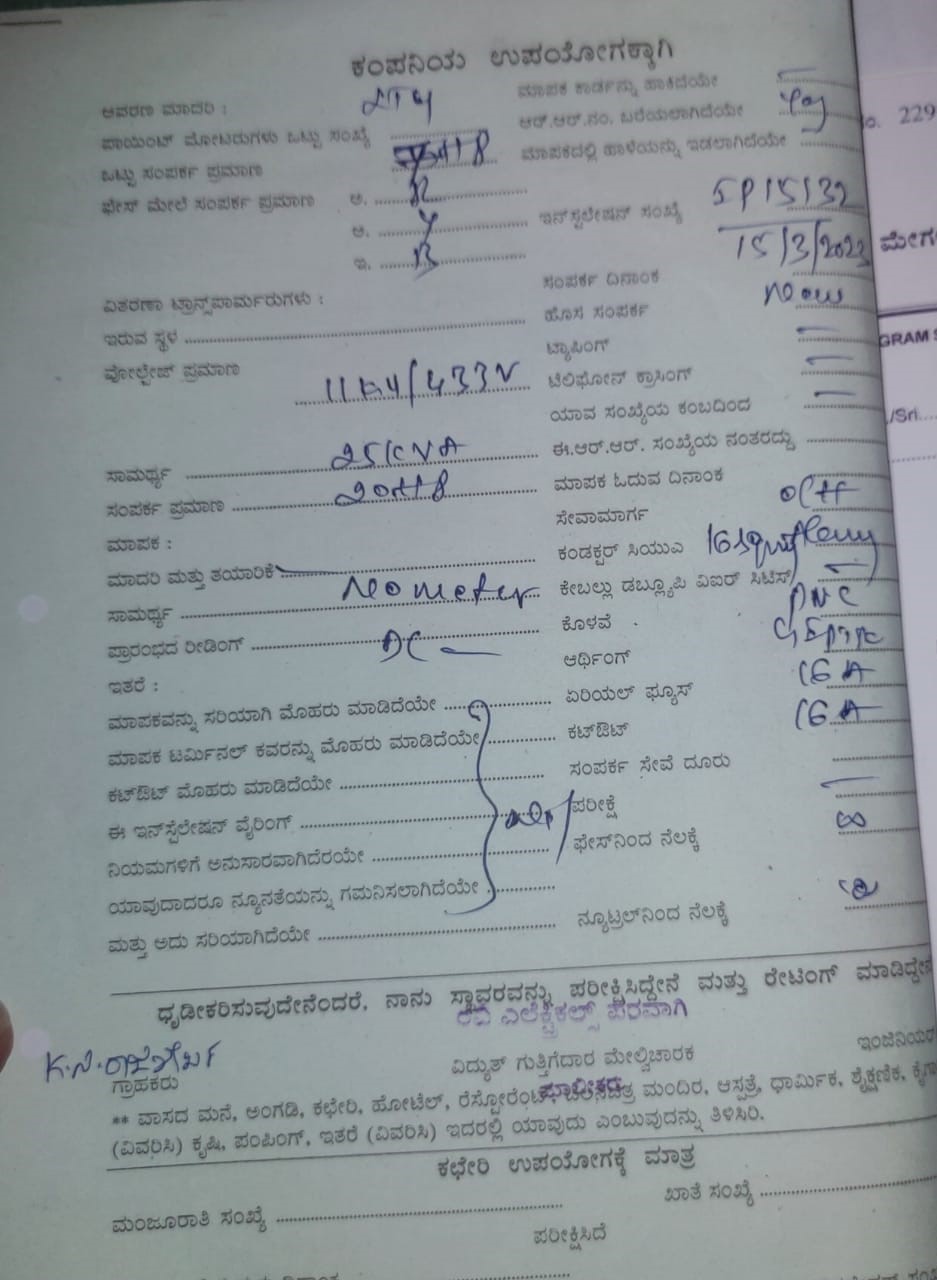 ಕಂಪನಿಯ ಉಪಯೋಗಕ್ಕಾಗಿ
ಆವರಣ ಮಾದರಿ : ಮಾಪಕ ಕಾರ್ಡನ್ನು ಹಾಕಿದೆಯೇ
ಪಾಯಿಂಟ್ ಮೋಟರುಗಳು ಒಟ್ಟು ಸಂಖ್ಯೆ ಆರ್.ಆರ್.ನಂ. ಬರೆಯಲಾಗಿದೆಯೇ
ಒಟ್ಟು ಸಂಪರ್ಕ ಪ್ರಮಾಣ ಮಾಪಕದಲ್ಲಿ ಹಾಳೆಯನ್ನು ಇಡಲಾಗಿದೆಯೇ
o. 229
ಫೇಸ್ ಮೇಲೆ ಸಂಪರ್ಕ ಪ್ರಮಾಣ ಅ. R
ಆ. Y ಇನ್‌ಸ್ಟಲೇಷನ್ ಸಂಖ್ಯೆ IP15132
ಇ. B 15/3/2023
ಮೇಗ
ವಿತರಣಾ ಟ್ರಾನ್ಸ್‌ಫಾರ್ಮರುಗಳು : ಸಂಪರ್ಕ ದಿನಾಂಕ
ಇರುವ ಸ್ಥಳ ಹೊಸ ಸಂಪರ್ಕ New
ವೋಲ್ಟೇಜ್ ಪ್ರಮಾಣ 11KV/433V ಟ್ಯಾಪಿಂಗ್
GRAM S
ಟೆಲಿಫೋನ್ ಕ್ರಾಸಿಂಗ್
ಯಾವ ಸಂಖ್ಯೆಯ ಕಂಬದಿಂದ
/Sri....
ಸಾಮರ್ಥ್ಯ 25KVA ಈ.ಆರ್.ಆರ್. ಸಂಖ್ಯೆಯ ನಂತರದ್ದು
ಸಂಪರ್ಕ ಪ್ರಮಾಣ ಮಾಪಕ ಓದುವ ದಿನಾಂಕ
ಮಾಪಕ : ಸೇವಾಮಾರ್ಗ OH
ಮಾದರಿ ಮತ್ತು ತಯಾರಿಕೆ ಕಂಡಕ್ಟರ್ ಸಿಯುಎ
ಸಾಮರ್ಥ್ಯ No meter ಕೇಬಲ್ಲು ಡಬ್ಲ್ಯೂಪಿ ವಿಐರ್ ಸಿಟಿಸ್
ಪ್ರಾರಂಭದ ರೀಡಿಂಗ್ DC ಕೊಳವೆ PVC
ಇತರೆ : ಆರ್ಥಿಂಗ್
ಮಾಪಕವನ್ನು ಸರಿಯಾಗಿ ಮೊಹರು ಮಾಡಿದೆಯೇ ಏರಿಯಲ್ ಫ್ಯೂಸ್ 16 A
ಮಾಪಕ ಟರ್ಮಿನಲ್ ಕವರನ್ನು ಮೊಹರು ಮಾಡಿದೆಯೇ ಕಟ್‌ಔಟ್ 16 A
ಕಟ್‌ಔಟ್ ಮೊಹರು ಮಾಡಿದೆಯೇ ಸಂಪರ್ಕ ಸೇವೆ ದೂರು
ಈ ಇನ್‌ಸ್ಟಲೇಷನ್ ವೈರಿಂಗ್ ಪರೀಕ್ಷೆ
ನಿಯಮಗಳಿಗೆ ಅನುಸಾರವಾಗಿದೆರಯೇ ಫೇಸ್‌ನಿಂದ ನೆಲಕ್ಕೆ ∞
ಯಾವುದಾದರೂ ನ್ಯೂನತೆಯನ್ನು ಗಮನಿಸಲಾಗಿದೆಯೇ
ಮತ್ತು ಅದು ಸರಿಯಾಗಿದೆಯೇ ನ್ಯೂಟ್ರಲ್‌ನಿಂದ ನೆಲಕ್ಕೆ
ಧೃಡೀಕರಿಸುವುದೇನೆಂದರೆ, ನಾನು ಸ್ಥಾವರವನ್ನು ಪರೀಕ್ಷಿಸಿದ್ದೇನೆ ಮತ್ತು ರೇಟಿಂಗ್ ಮಾಡಿದ್ದೇನೆ
ಎಲೆಕ್ಟ್ರಿಕಲ್ಸ್ ಪರವಾಗಿ
ಗ್ರಾಹಕರು ವಿದ್ಯುತ್ ಗುತ್ತಿಗೆದಾರ ಮೇಲ್ವಿಚಾರಕ ಇಂಜಿನಿಯರ
ಮಾಲೀಕರು
** ವಾಸದ ಮನೆ, ಅಂಗಡಿ, ಕಛೇರಿ, ಹೋಟೆಲ್, ರೆಸ್ಟೋರೆಂಟ್, ಚಲನಚಿತ್ರ ಮಂದಿರ, ಆಸ್ಪತ್ರೆ, ಧಾರ್ಮಿಕ, ಶೈಕ್ಷಣಿಕ, ಕೈಗಾ
(ವಿವರಿಸಿ) ಕೃಷಿ, ಪಂಪಿಂಗ್, ಇತರೆ (ವಿವರಿಸಿ) ಇದರಲ್ಲಿ ಯಾವುದು ಎಂಬುವುದನ್ನು ತಿಳಿಸಿರಿ.
ಕಛೇರಿ ಉಪಯೋಗಕ್ಕೆ ಮಾತ್ರ
ಮಂಜೂರಾತಿ ಸಂಖ್ಯೆ ಖಾತೆ ಸಂಖ್ಯೆ
ಪರೀಕ್ಷಿಸಿದೆ